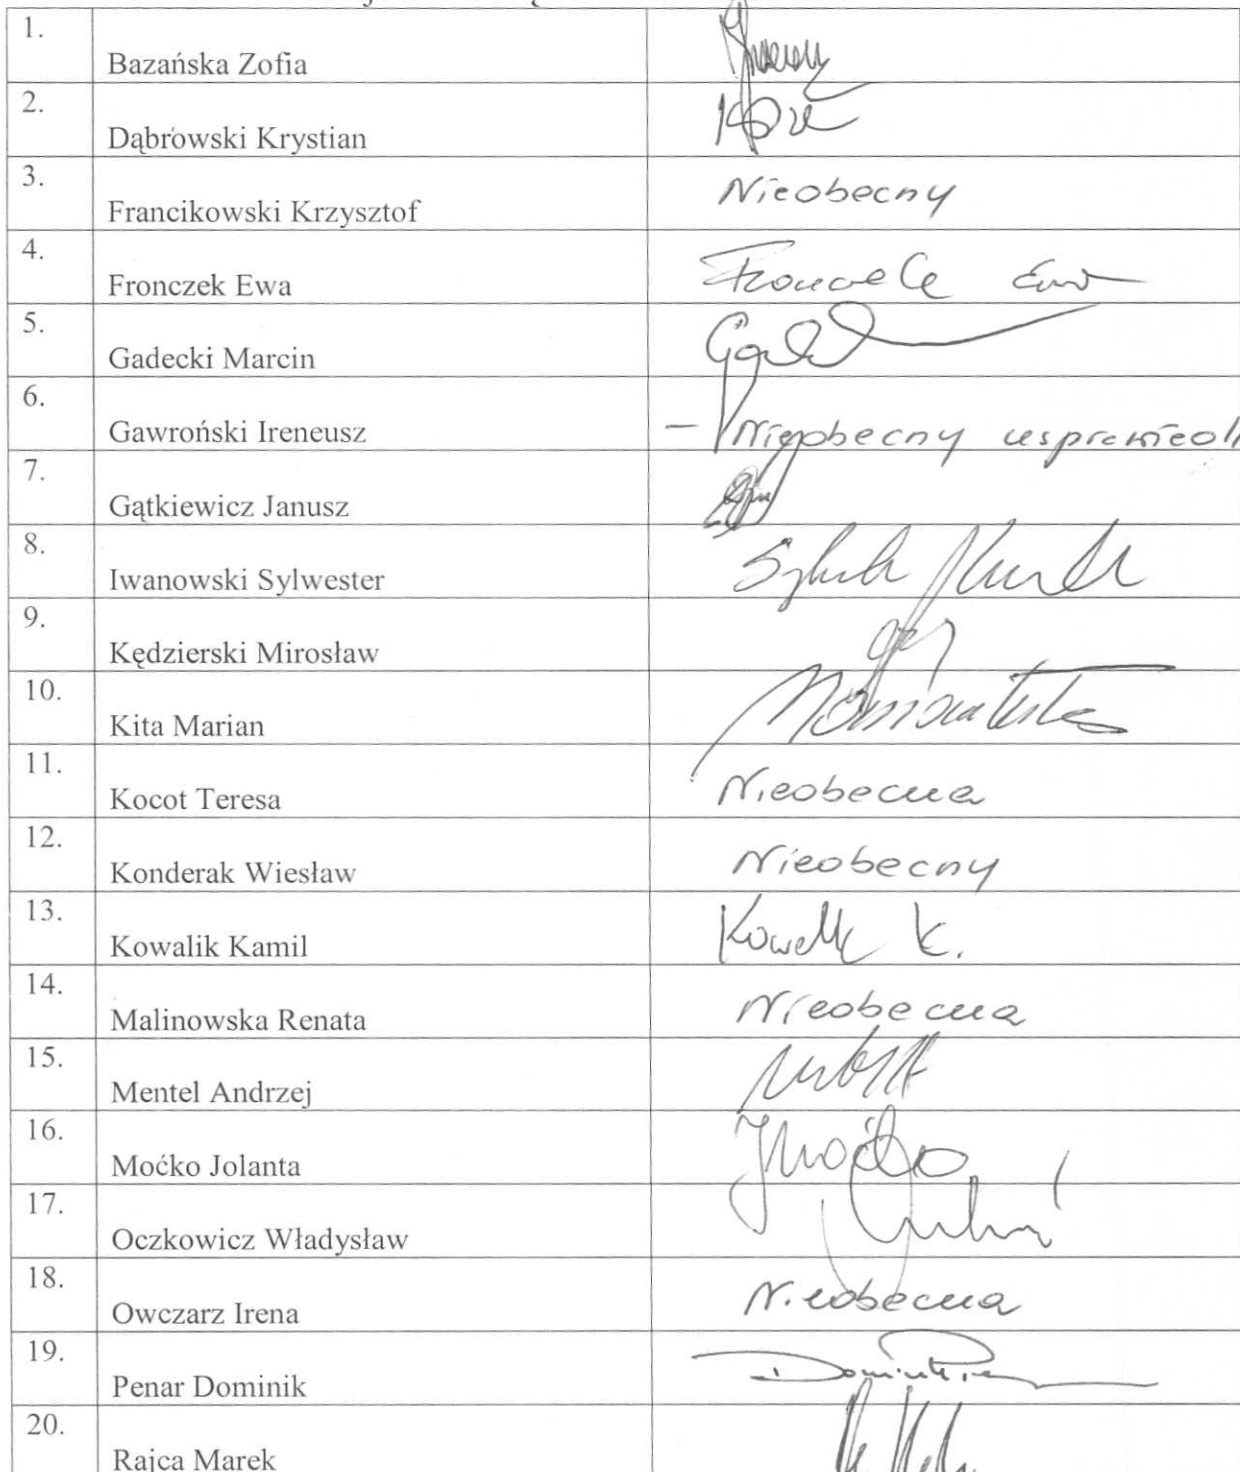 1.
Bazańska Zofia
2.
Dąbrowski Krystian
3.
Francikowski Krzysztof Nieobecny
4.
Fronczek Ewa
5.
Gadecki Marcin
6.
Gawroński Ireneusz – Nieobecny
7.
Gątkiewicz Janusz
8.
Iwanowski Sylwester
9.
Kędzierski Mirosław
10.
Kita Marian
11.
Kocot Teresa Nieobecna
12.
Konderak Wiesław Nieobecny
13.
Kowalik Kamil Kowalik K.
14.
Malinowska Renata Nieobecna
15.
Mentel Andrzej
16.
Moćko Jolanta JMoćko
17.
Oczkowicz Władysław
18.
Owczarz Irena Nieobecna
19.
Penar Dominik
20.
Rajca Marek